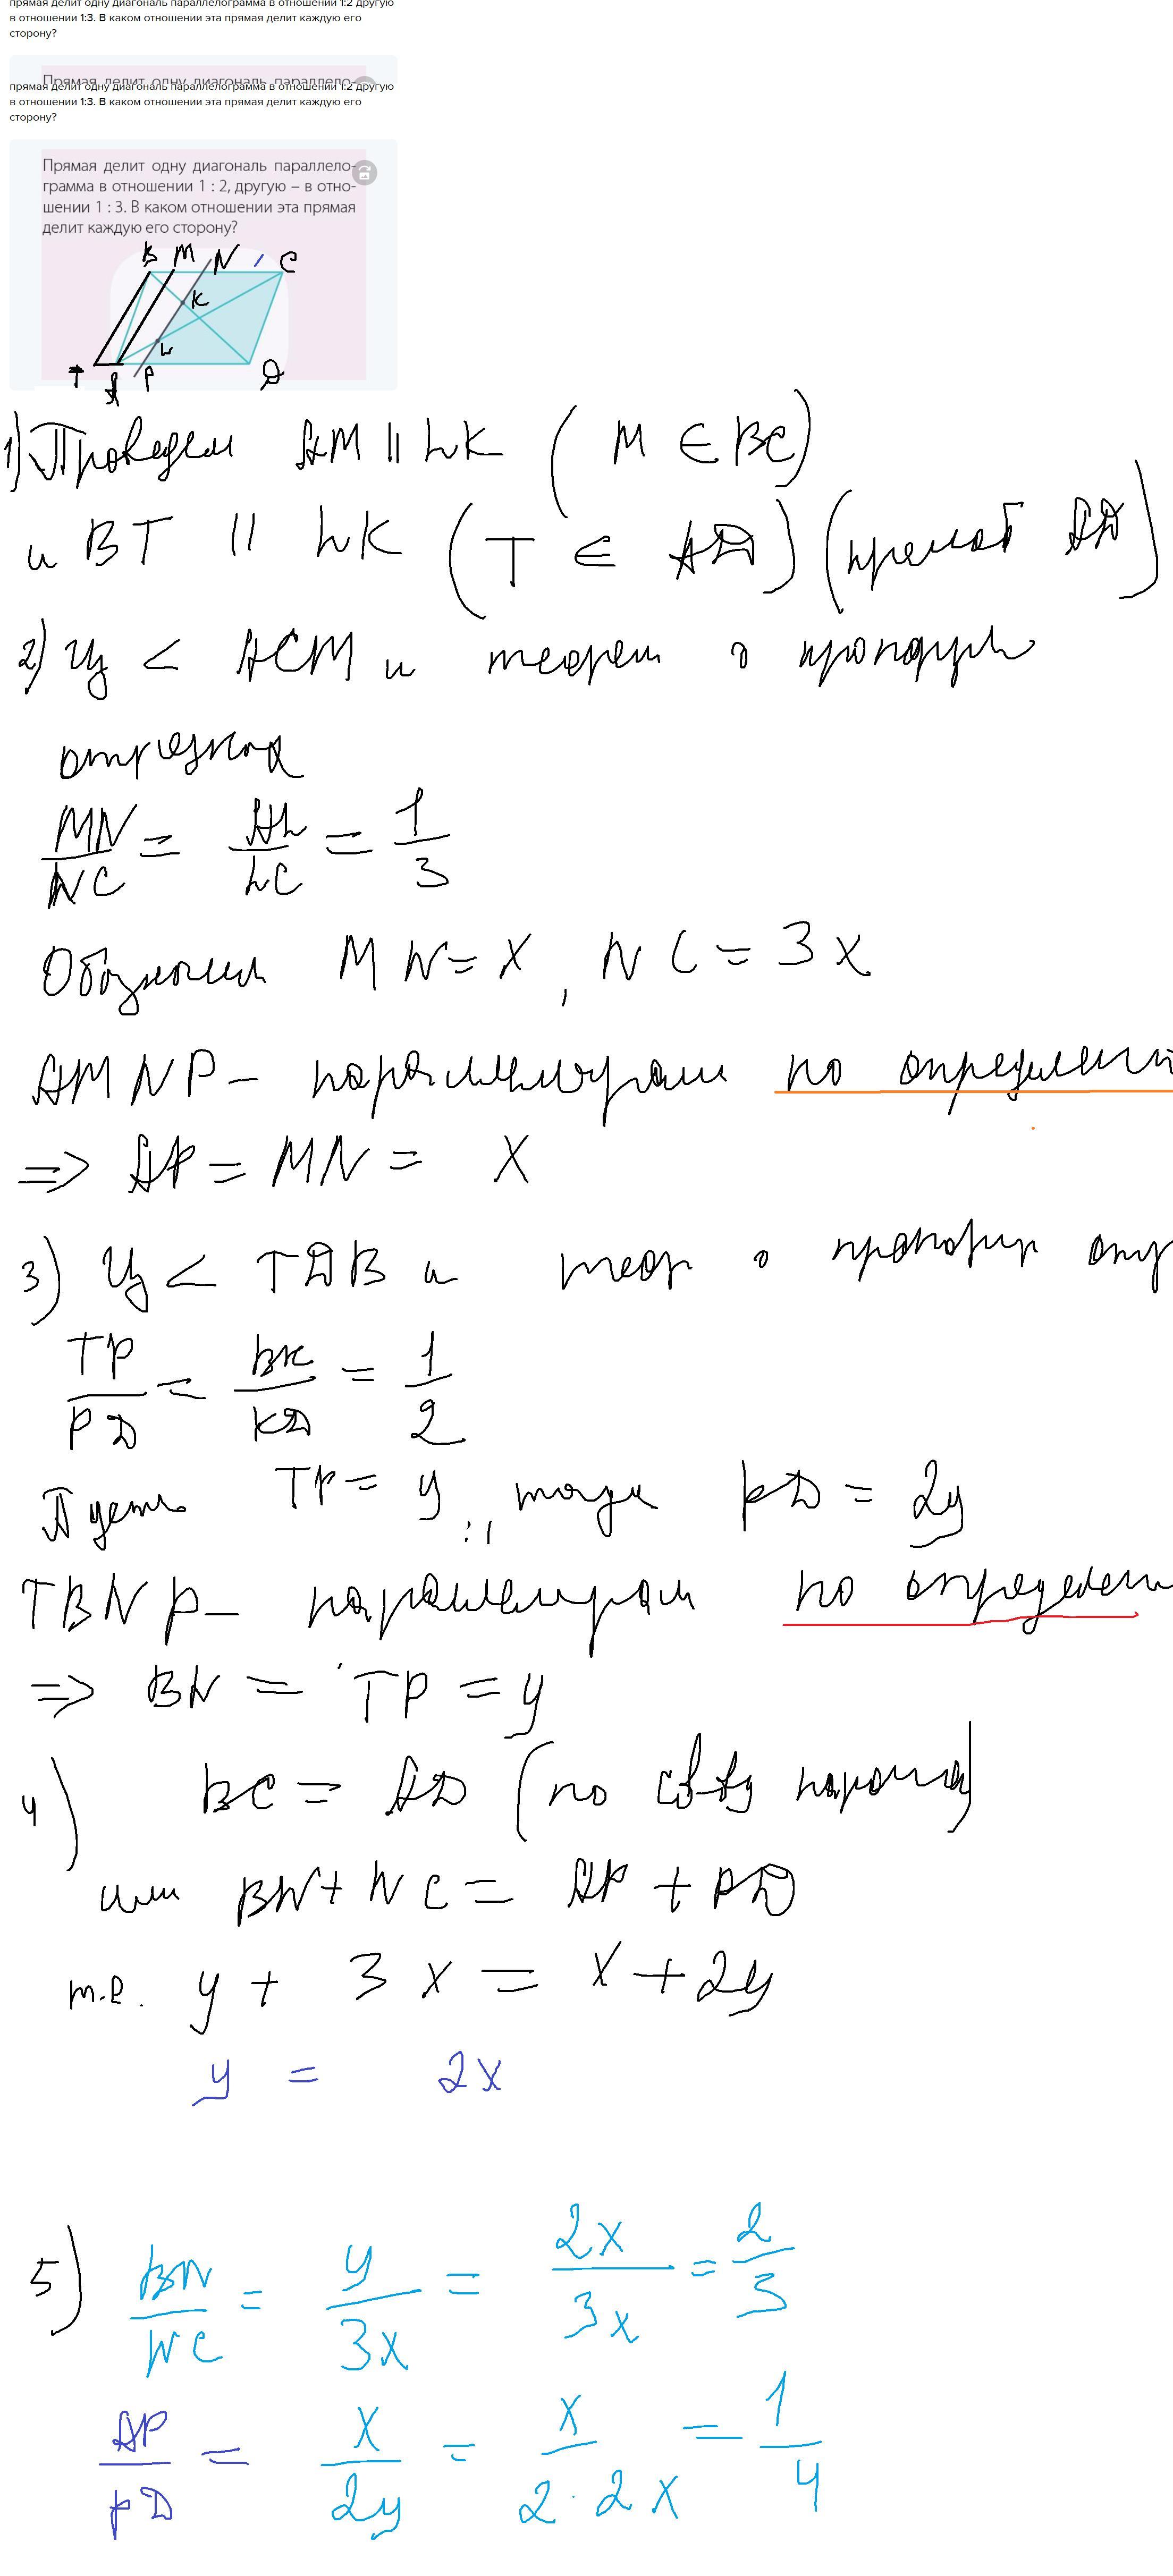 прямая делит одну диагональ параллелограмма в отношении 1:2 другую
в отношении 1:3. В каком отношении эта прямая делит каждую его
сторону?
Прямая делит одну диагональ параллело-
прямая делит одну диагональ параллелограмма в отношении 1:2 другую
в отношении 1:3. В каком отношении эта прямая делит каждую его
сторону?
Прямая делит одну диагональ параллело-
грамма в отношении 1 : 2, другую – в отно-
шении 1 : 3. В каком отношении эта прямая
делит каждую его сторону?
B M N C
K
L
T A P D
1) Проведем AM || LK (M ∈ BC)
и BT || LK (T ∈ AD) (прямой AD)
2) Из < ACM и теорем о пропорц
отрезках
MN/NC = AL/LC = 1/3
Обозначим MN = x, NC = 3x
AMNP – параллелограмм по определен
=> AP = MN = x
3) Из < TDB и теор о пропорц отр
TP/PD = BK/KD = 1/2
Пусть TP = y, тогда PD = 2y
TBNP – параллелограм по определен
=> BN = TP = y
4) BC = AD (по св-ву
или BN + NC = AP + PD
т.е. y + 3x = x + 2y
y = 2x
5) BN/NC = y/3x = 2x/3x = 2/3
AP/PD = x/2y = x/2·2x = 1/4